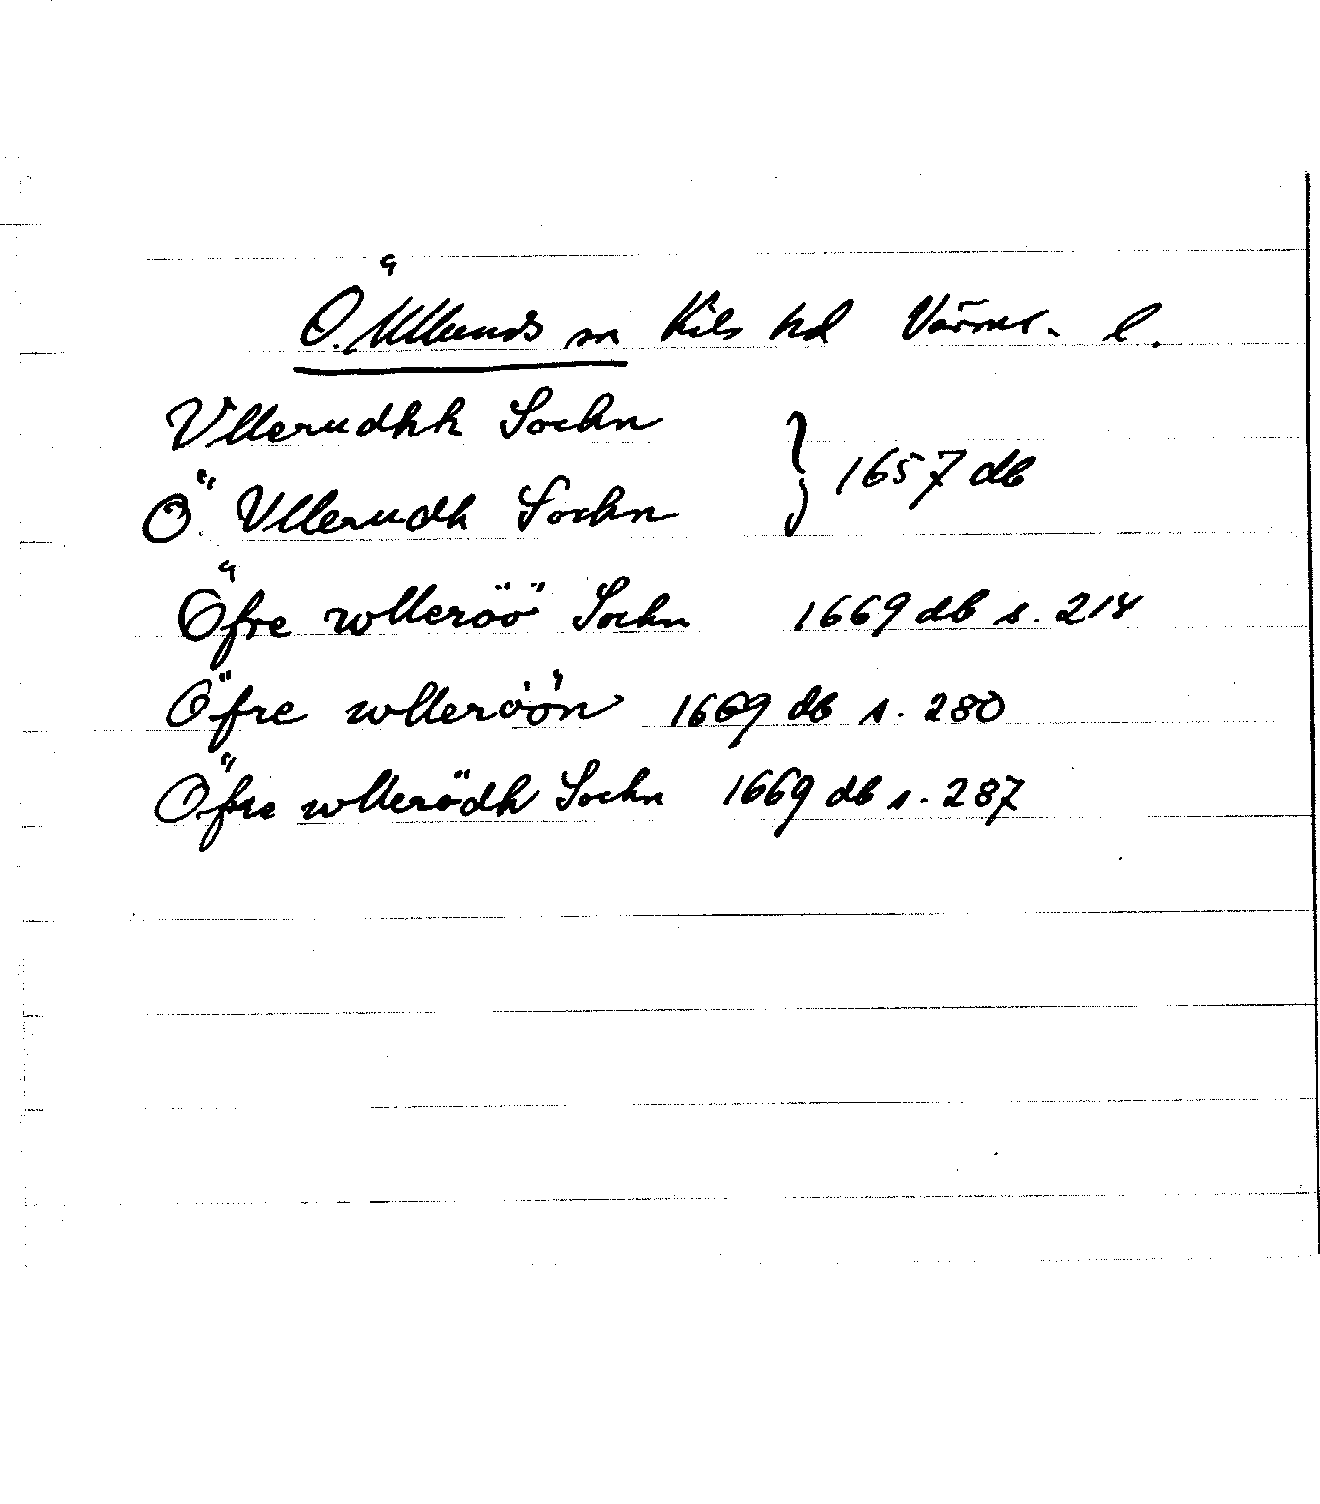 Ö. Ulleruds sn Kils hd Värml. l.
Vllerudhh Sochn
Ö. Vllerudh Sochn } 1657 db
Öfre wlleröö Sochn 1669 db s. 214
Öfre wlleröön 1669 db s. 280
Öfre wllerödh Sochn 1669 db s. 287